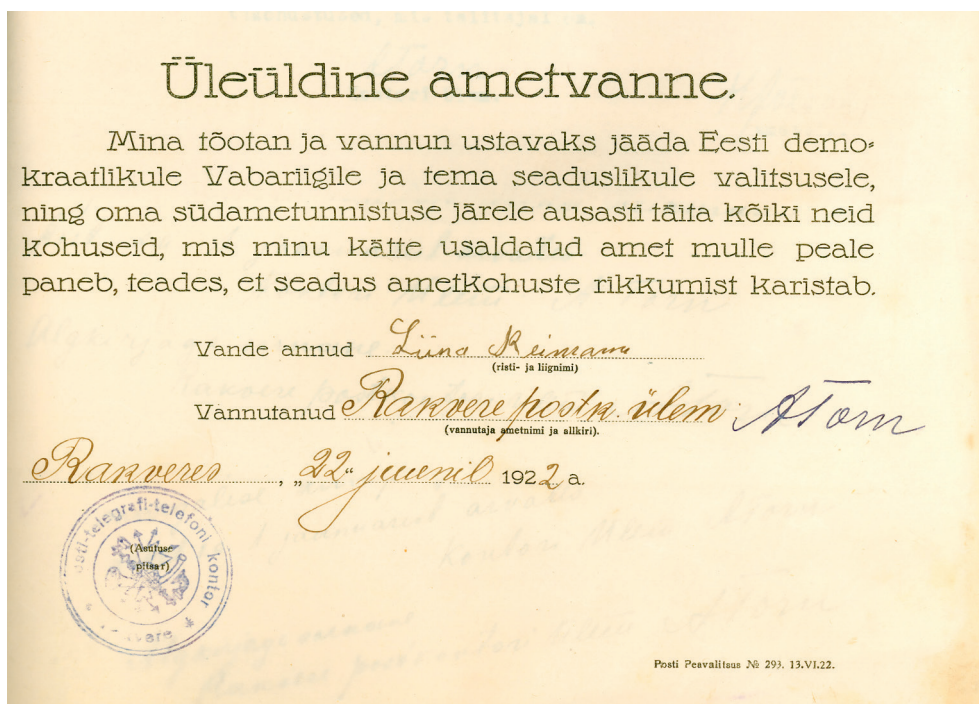 Üleüldine ametvanne.
Mina tõotan ja vannun ustavaks jääda Eesti demo-
kraatlikule Vabariigile ja tema seaduslikule valitsusele,
ning oma südametunnistuse järele ausasti täita kõiki neid
kohuseid, mis minu kätte usaldatud amet mulle peale
paneb, teades, et seadus ametkohuste rikkumist karistab.
Vande annud Liina Reimann
(risti- ja liignimi)
Vannutanud Rakvere postk. ülem ATorn
(vannutaja ametnimi ja allkiri).
Rakveres, „22“ juunil 1922 a.
esti-telegrafi-telefoni kontor
(Asutuse
pitsar)
Posti Peavalitsus № 293. 13.VI.22.